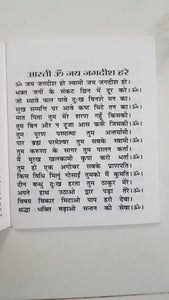 आरती ॐ जय जगदीश हरे
ॐ जय जगदीश हरे स्वामी जय जगदीश हरे।
भक्त जनों के संकट छिन में दूर करे ।ॐ।
जो ध्यावे फल पावे दुःख बिनशे मन का।
सुख सम्पत्ति घर आवे कष्ट मिटे तन का।ॐ।
मात पिता तुम मेरे शरण गहूँ किसकी।
तुम बिन और न दूजा आस करूँ जिसकी।ॐ।
तुम पूरण परमात्मा तुम अन्तर्यामी।
पार ब्रह्म परमेश्वर तुम सबके स्वामी।ॐ।
तुम करुणा के सागर तुम पालन कर्ता।
मैं मूरख खलकामी कृपा करो भर्ता।ॐ।
तुम हो एक अगोचर सबके प्राणपति।
किस विधि मिलूं गोसाईं तुमको मैं कुमति।ॐ।
दीन बन्धु दुःख हरता तुम ठाकुर मेरे।
अपने हाथ उठाओ द्वार पड़ा तेरे।ॐ।
विषय विकार मिटाओ पाप हरो देवा।
श्रद्धा भक्ति बढ़ाओ सन्तन की सेवा।ॐ।